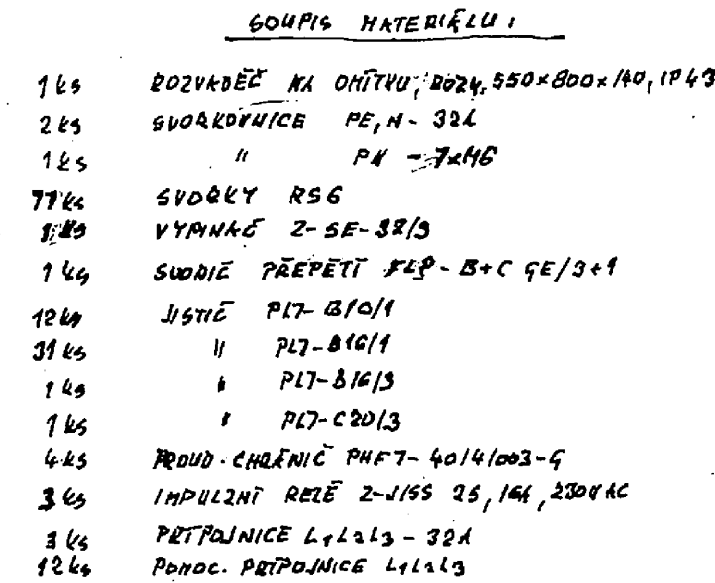 SOUPIS MATERIÁLU:
1 ks ROZVADĚČ NA OMÍTKU, ROZM. 550x800x140, IP43
2 ks SVORKOVNICE PE, N - 32A
1 ks " PN - 7xM6
77 ks SVORKY RS6
1 ks VYPINAČ Z-SE-32/3
1 ks SVODIČ PŘEPĚTÍ FLP-B+C GE/3+1
12 ks JISTIČ PL7-B10/1
31 ks " PL7-B16/1
1 ks " PL7-B16/3
1 ks " PL7-C20/3
4 ks PROUD. CHRÁNIČ PHF7-40/4/003-G
3 ks IMPULZNÍ RELÉ Z-JISS 25, 16A, 230V AC
3 ks PŘÍPOJNICE L1L2L3 - 32A
12 ks POMOC. PŘÍPOJNICE L1L2L3